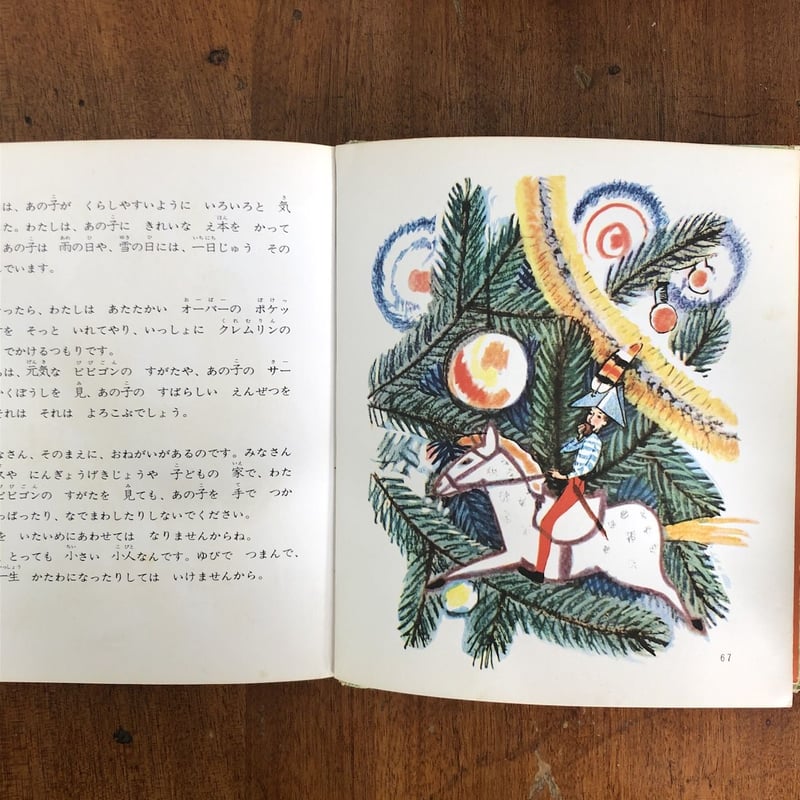 は、あの子が くらしやすいように いろいろと 気
た。わたしは、あの子に きれいな え本を かって
あの子は 雨の日や、雪の日には、一日じゅう その
でいます。
ったら、わたしは あたたかい オーバーの ポケッ
を そっと いれてやり、いっしょに クレムリンの
でかけるつもりです。
は、元気な ビビゴンの すがたや、あの子の サー
くぼうしを 見、あの子の すばらしい えんぜつを
それは それは よろこぶでしょう。
なさん、そのまえに、おねがいがあるのです。みなさん
スや にんぎょうげきじょうや 子どもの 家で、わた
ビビゴンの すがたを 見ても、あの子を 手で つか
っぱったり、なでまわしたりしないでください。
を いたいめにあわせては なりませんからね。
とっても 小さい 小人なんです。ゆびで つまんで、
一生 かたわになったりしては いけませんから。
67